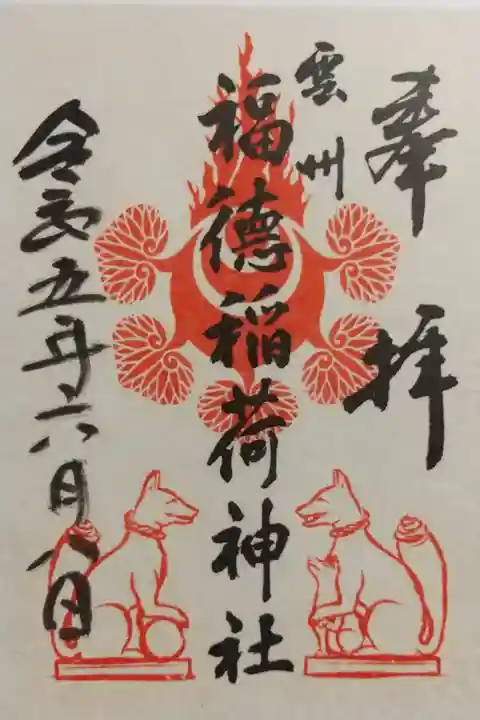 奉拝
雲州
福徳稲荷神社
令和五年六月八日